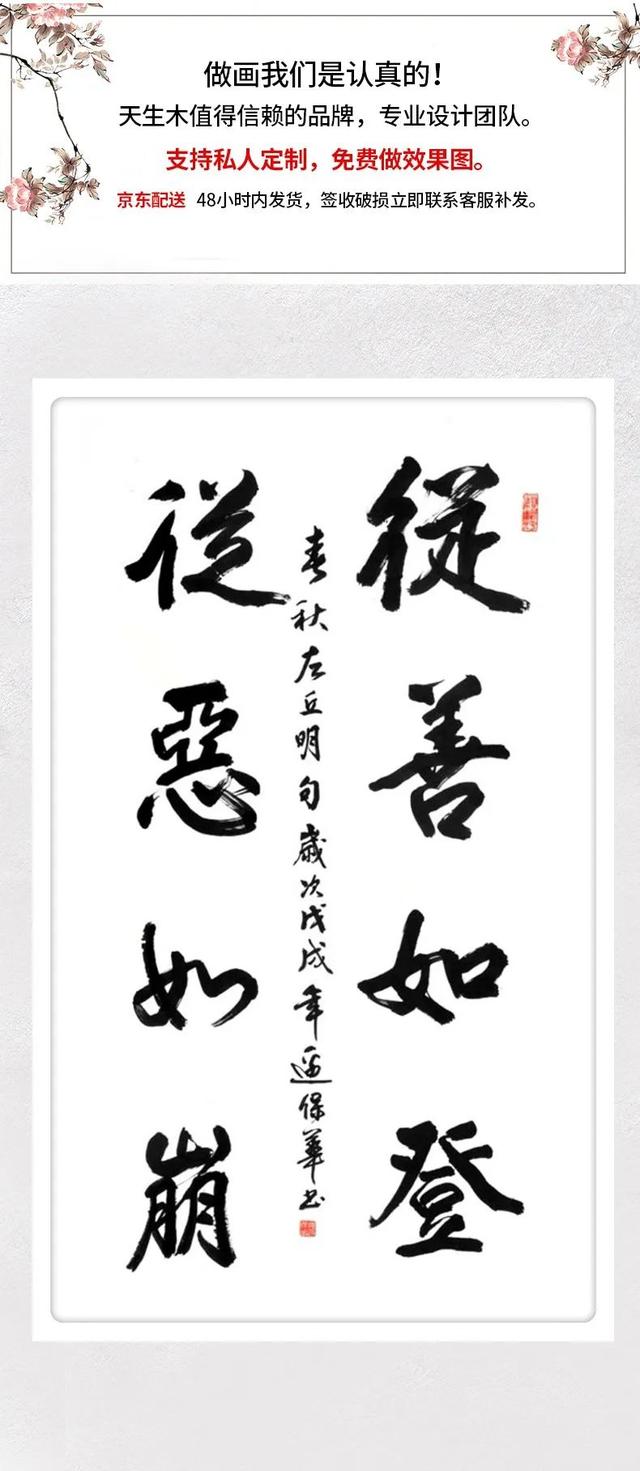 做画我们是认真的！
天生木值得信赖的品牌，专业设计团队。
支持私人定制，免费做效果图。
京东配送 48小时内发货，签收破损立即联系客服补发。
從善如登
從惡如崩
春秋左丘明句歲次戊戌年邊保華书